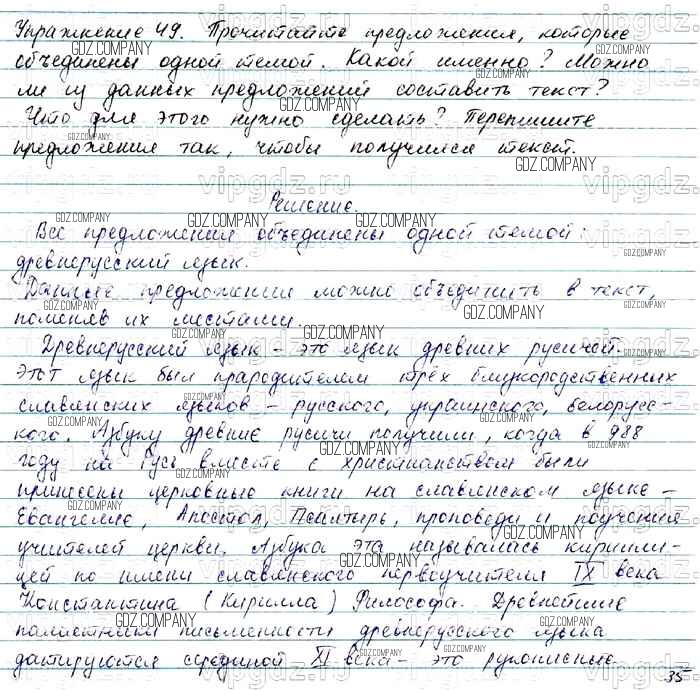 Упражнение 49. Прочитайте предложения, которые
объединены одной темой. Какой именно? Можно
ли из данных предложений составить текст?
Что для этого нужно сделать? Перепишите
предложения так, чтобы получился текст.
Решение.
Все предложения объединены одной темой:
древнерусский язык.
Данные предложения можно объединить в текст,
поменяв их местами.
Древнерусский язык - это язык древних русичей.
Этот язык был прародителем трёх близкородственных
славянских языков - русского, украинского, белорусс-
кого. Азбуку древние русичи получили, когда в 988
году на Русь вместе с христианством были
принесены церковные книги на славянском языке -
Евангелие, Апостол, Псалтырь, проповеди и поучения
учителей церкви. Азбука эта называлась кирилли-
цей по имени славянского первоучителя IX века
Константина (Кирилла) Философа. Древнейшие
памятники письменности древнерусского языка
датируются серединой XI века - это рукописные
35